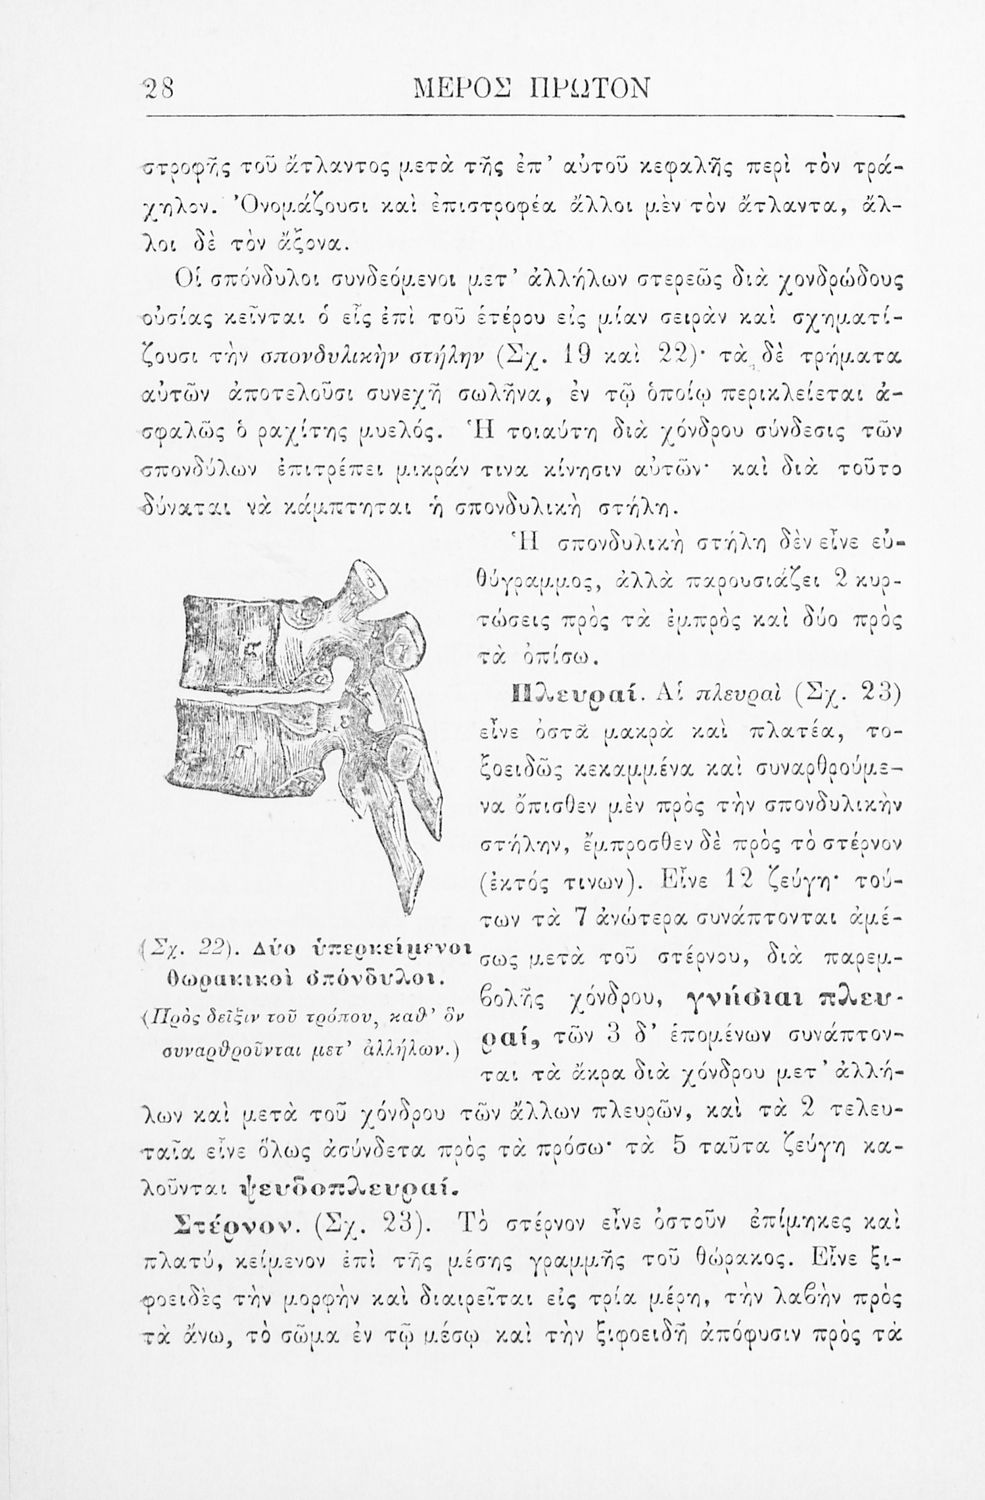 28 ΜΕΡΟΣ ΠΡΩΤΟΝ
στροφῆς τοῦ ἄτλαντος μετὰ τῆς ἐπ’ αὐτοῦ κεφαλῆς περὶ τὸν τρά-
χηλον. Ὀνομάζουσι καὶ ἐπιστροφέα ἄλλοι μὲν τὸν ἄτλαντα, ἄλ-
λοι δὲ τὸν ἄξονα.
Οἱ σπόνδυλοι συνδεόμενοι μετ’ ἀλλήλων στερεῶς διὰ χονδρώδους
οὐσίας κεῖνται ὁ εἷς ἐπὶ τοῦ ἑτέρου εἰς μίαν σειρὰν καὶ σχηματί-
ζουσι τὴν σπονδυλικὴν στήλην (Σχ. 19 καὶ 22)· τὰ δὲ τρήματα
αὐτῶν ἀποτελοῦσι συνεχῆ σωλῆνα, ἐν τῷ ὁποίῳ περικλείεται ἀ-
σφαλῶς ὁ ραχίτης μυελός. Ἡ τοιαύτη διὰ χόνδρου σύνδεσις τῶν
σπονδύλων ἐπιτρέπει μικράν τινα κίνησιν αὐτῶν· καὶ διὰ τοῦτο
δύναται νὰ κάμπτηται ἡ σπονδυλικὴ στήλη.
Ἡ σπονδυλικὴ στήλη δὲν εἶνε εὐ-
θύγραμμος, ἀλλὰ παρουσιάζει 2 κυρ-
τώσεις πρὸς τὰ ἐμπρὸς καὶ δύο πρὸς
τὰ ὀπίσω.
Πλευραί. Αἱ πλευραὶ (Σχ. 23)
εἶνε ὀστᾶ μακρὰ καὶ πλατέα, το-
ξοειδῶς κεκαμμένα καὶ συναρθρούμε-
να ὄπισθεν μὲν πρὸς τὴν σπονδυλικὴν
στήλην, ἔμπροσθεν δὲ πρὸς τὸ στέρνον
(ἐκτός τινων). Εἶνε 12 ζεύγη· τού-
των τὰ 7 ἀνώτερα συνάπτονται ἀμέ-
σως μετὰ τοῦ στέρνου, διὰ παρεμ-
βολῆς χόνδρου, γνήσιαι πλευ-
ραί, τῶν 3 δ’ ἑπομένων συνάπτον-
ται τὰ ἄκρα διὰ χόνδρου μετ’ ἀλλή-
(Σχ. 22). Δύο ὑπερκείμενοι
θωρακικοὶ σπόνδυλοι.
(Πρὸς δεῖξιν τοῦ τρόπου, καθ’ ὃν
συναρθροῦνται μετ’ ἀλλήλων.)
λων καὶ μετὰ τοῦ χόνδρου τῶν ἄλλων πλευρῶν, καὶ τὰ 2 τελευ-
ταῖα εἶνε ὅλως ἀσύνδετα πρὸς τὰ πρόσω· τὰ 5 ταῦτα ζεύγη κα-
λοῦνται ψευδοπλευραί.
Στέρνον. (Σχ. 23). Τὸ στέρνον εἶνε ὀστοῦν ἐπίμηκες καὶ
πλατύ, κείμενον ἐπὶ τῆς μέσης γραμμῆς τοῦ θώρακος. Εἶνε ξι-
φοειδὲς τὴν μορφὴν καὶ διαιρεῖται εἰς τρία μέρη, τὴν λαβὴν πρὸς
τὰ ἄνω, τὸ σῶμα ἐν τῷ μέσῳ καὶ τὴν ξιφοειδῆ ἀπόφυσιν πρὸς τὰ